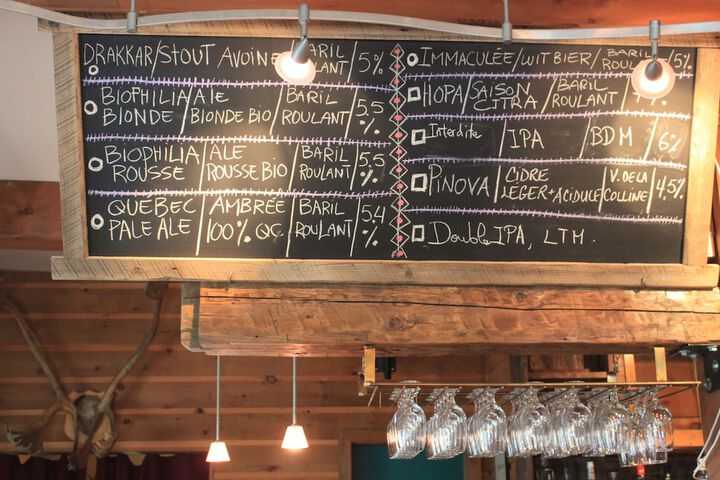 DRAKKAR/STOUT AVOINE BARIL ROULANT/5%
BIOPHILIA BLONDE/ALE BLONDE BIO/BARIL ROULANT/5,5%
BIOPHILIA ROUSSE/ALE ROUSSE BIO/BARIL ROULANT/5,5%
QUÉBEC PALE ALE/AMBRÉE 100% QC./BARIL ROULANT/5,4%
IMMACULÉE/WIT BIER/BARIL ROUL /5%
HOPA/SAISON CITRA/BARIL ROULANT/
Interdite/IPA/BDM/6%
PINOVA/CIDRE LÉGER+ACIDULÉ/V. DE LA COLLINE/4.5%
Double IPA, LTM.